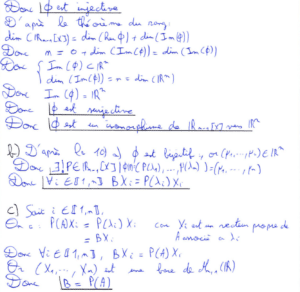 Donc ϕ est injective
D'après le théorème du rang:
dim(ℝn-1[X]) = dim(Ker ϕ) + dim(Im(ϕ))
Donc n = 0 + dim(Im(ϕ)) = dim(Im(ϕ))
Donc { Im(ϕ) ⊂ ℝⁿ
dim(Im(ϕ)) = n = dim(ℝⁿ)
Donc Im(ϕ) = ℝⁿ
Donc ϕ est surjective
Donc ϕ est un isomorphisme de ℝn-1[X] vers ℝⁿ
b) D'après le 1a) ϕ est bijectif, or (μ1,...,μn) ∈ ℝⁿ
Donc ∃! P ∈ ℝn-1[X] | (P(λ1),...,P(λn)) = (μ1,...,μn)
Donc ∀i ∈ ⟦1,n⟧ BXi = P(λi)Xi
c) Soit i ∈ ⟦1,n⟧.
On a: P(A)Xi = P(λi)Xi car Xi est un vecteur propre de
= BXi A associé à λi
Donc ∀i ∈ ⟦1,n⟧, BXi = P(A)Xi
Or (X1,...,Xn) est une base de ℳn,1(ℝ)
Donc B = P(A)